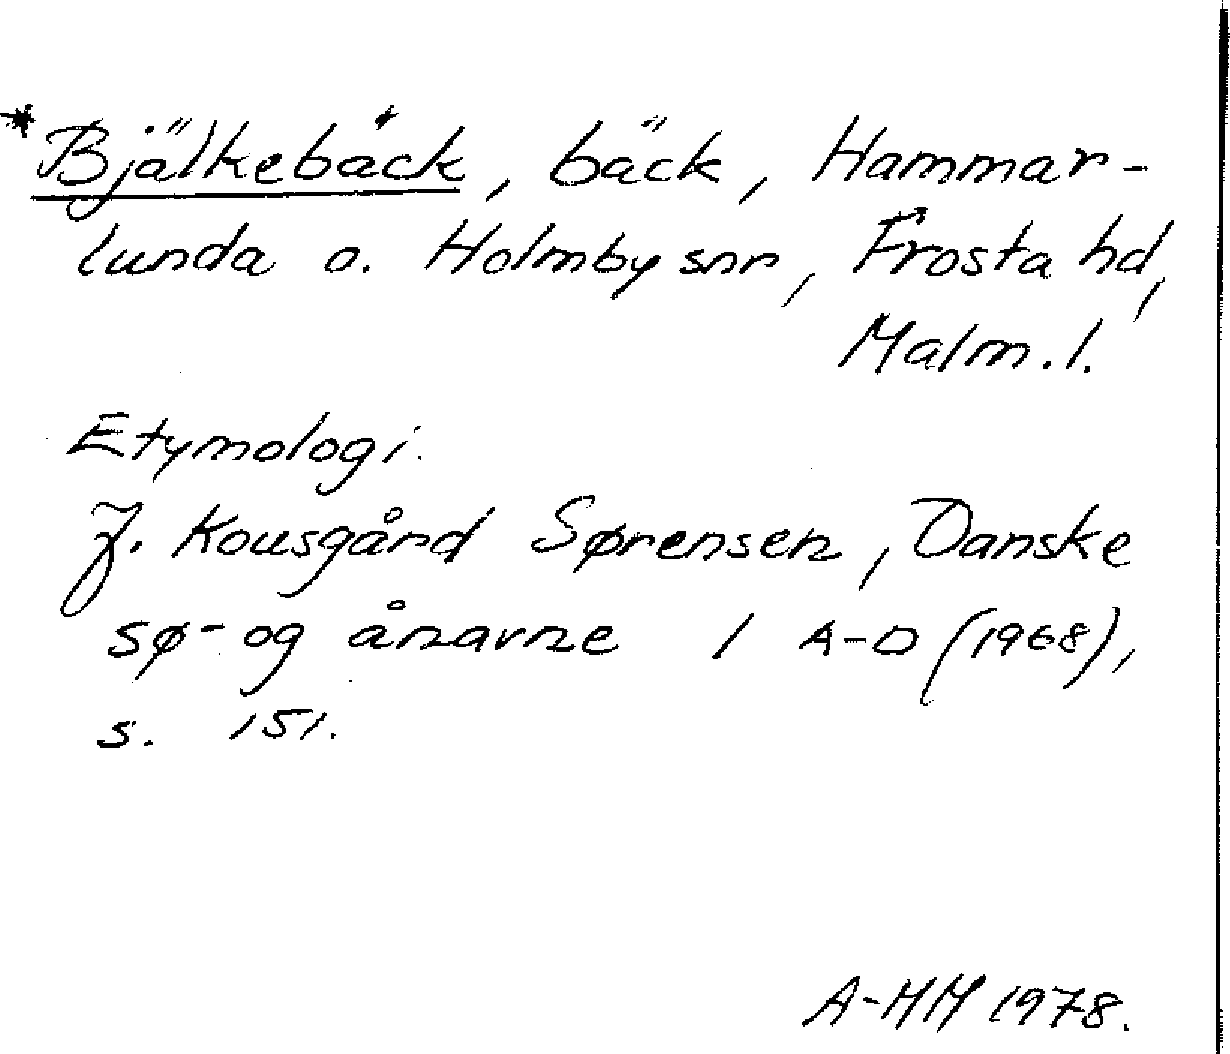 *Bjälkebäck, bäck, Hammar-
lunda o. Holmby snr, Frosta hd,
Malm.l.
Etymologi.
J. Kousgård Sørensen, Danske
sø- og ånavne 1 A-D (1968),
s. 151.
A-MM 1978.